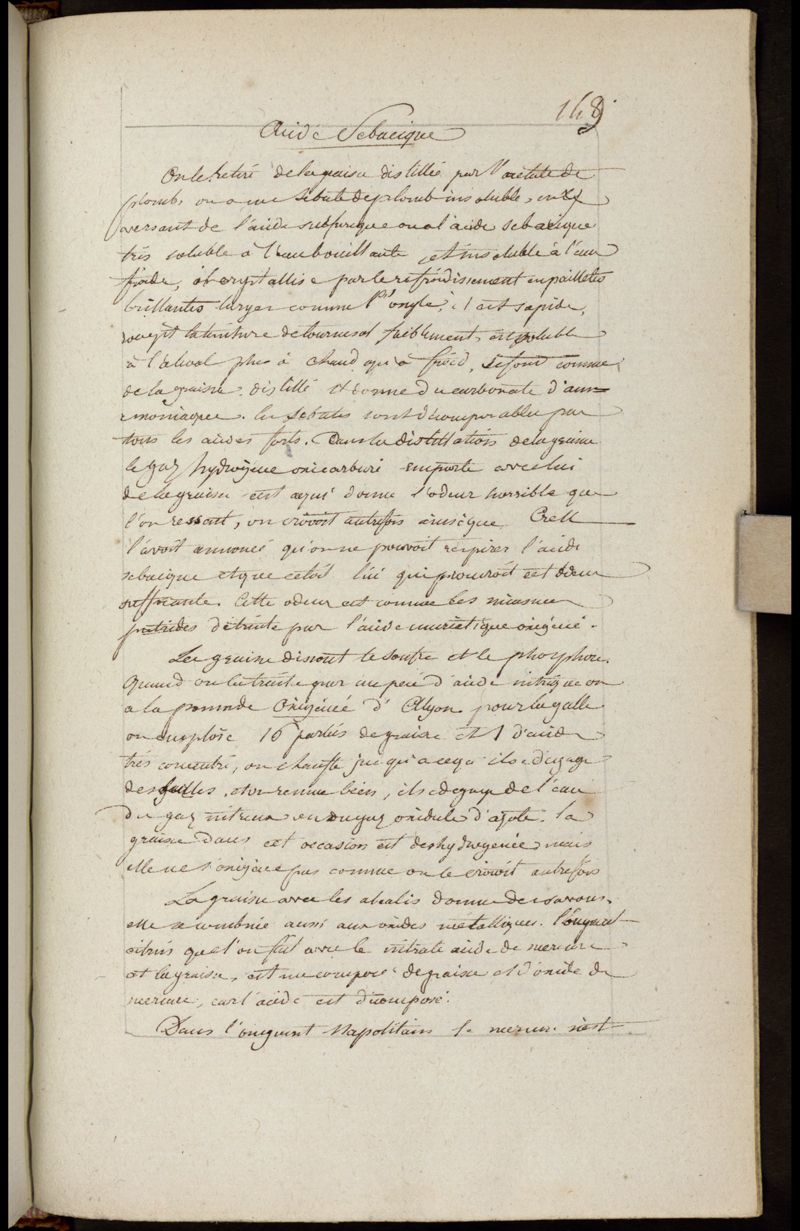 148
Acide Sebacique
On le retire de la graisse distillée par l'acetate de
plomb, on a un sebate de plomb insoluble, en y
versant de l'acide sulfurique on a l'acide sebacique
très soluble à l'eau bouillante, et insoluble à l'eau
froide, il crystallise par le refroidissement en paillettes
brillantes larges comme l'ongle, il est sapide,
rougit la teinture de tournesol faiblement, est soluble
à l'alcool plus à chaud qu'à froid, se fond comme
de la graisse, distillé il donne du carbonate d'am=
moniaque. les sebates sont decomposables par
tous les acides forts. Dans la distillation de la graisse
le gaz hydrogène oxicarburé emporte avec lui
de la graisse et aqui donne l'odeur horrible que
l'on ressent, on croioit autrefois que Crell
l'avoit annoncé qu'on ne pouvoit respirer l'acide
sebacique et que cetoit lui qui produisoit cet odeur
suffocante. Cette odeur est comme les miasmes
putrides detruite par l'acide muriatique oxigéné.
La graisse dissout le soufre et le phosphore.
Quand on la traite par un peu d'acide nitrique on
a la pommade Oxigénée d'Alyon pour la galle
on emploie 16 parties de graisse et 1 d'acide
très concentré, on chauffe jusqu'a ce qu'il se dégage
des bulles, et on remue bien, il se degage de l'eau
du gaz nitreux ou du gaz oxidule d'azote. la
graisse dans cet occasion est deshydrogenée mais
elle ne s'oxigène pas comme on le croioit autrefois
La graisse avec les alcalis donne des savons.
elle se combine aussi aux oxides metalliques. l'onguent
citrin que l'on fait avec le nitrate acide de mercure
et la graisse, est un composé de graisse et d'oxide de
mercure, car l'acide est décomposé.
Dans l'onguent Napolitain le mercure n'est